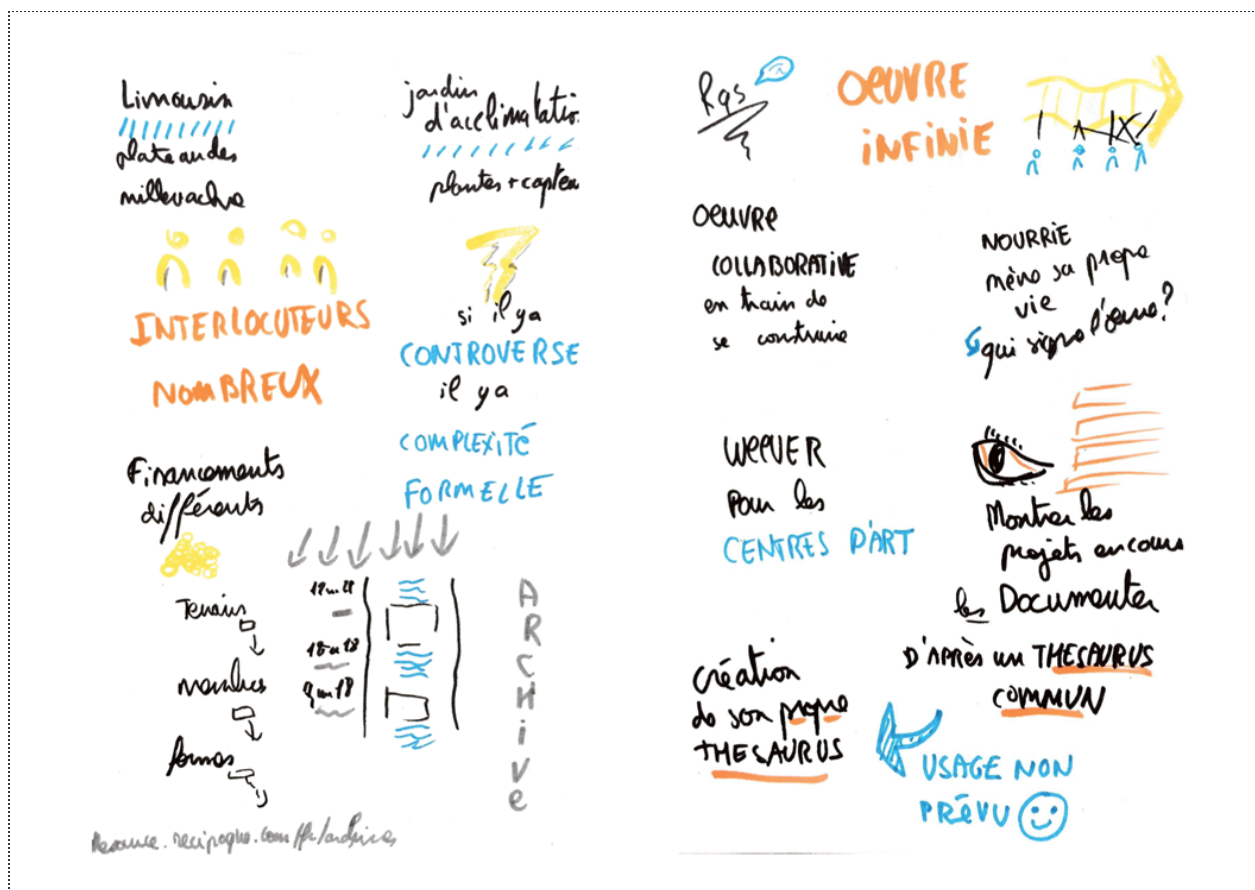 Limousin
plateau des
millevaches
jardin
d'acclimatatio
plantes + capteu
INTERLOCUTEURS
NOMBREUX
si il ya
CONTROVERSE
il y a
COMPLEXITÉ
FORMELLE
Financements
différents
Terrains
membres
formes
ARCHIVE
OEUVRE
INFINIE
OEUVRE
COLLABORATIVE
en train de
se construire
NOURRIE
mène sa propre
vie
qui signe l'oeuvre?
WEEVER
Pour les
CENTRES D'ART
Montrer les
projets en cours
les Documenter
D'APRÈS un THESAURUS
COMMUN
création
de son propre
THESAURUS
USAGE NON
PRÉVU